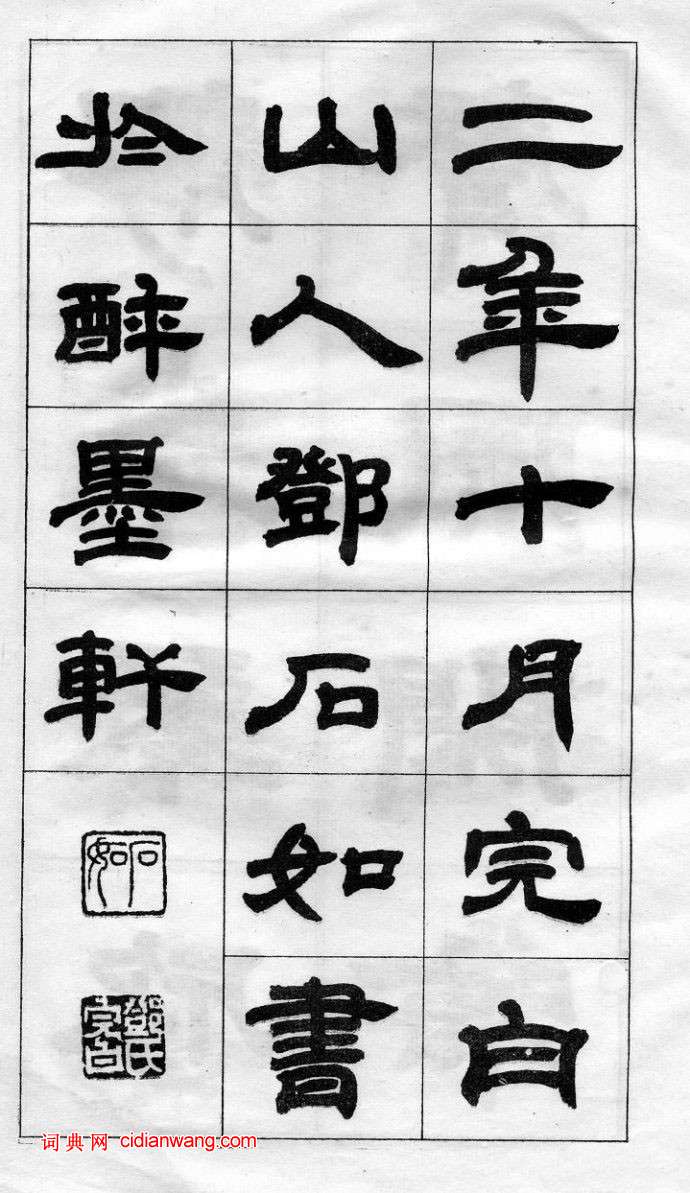 二年十月完白
山人鄧石如書
於醉墨軒
石如
鄧氏完白
词典网 cidianwang.com